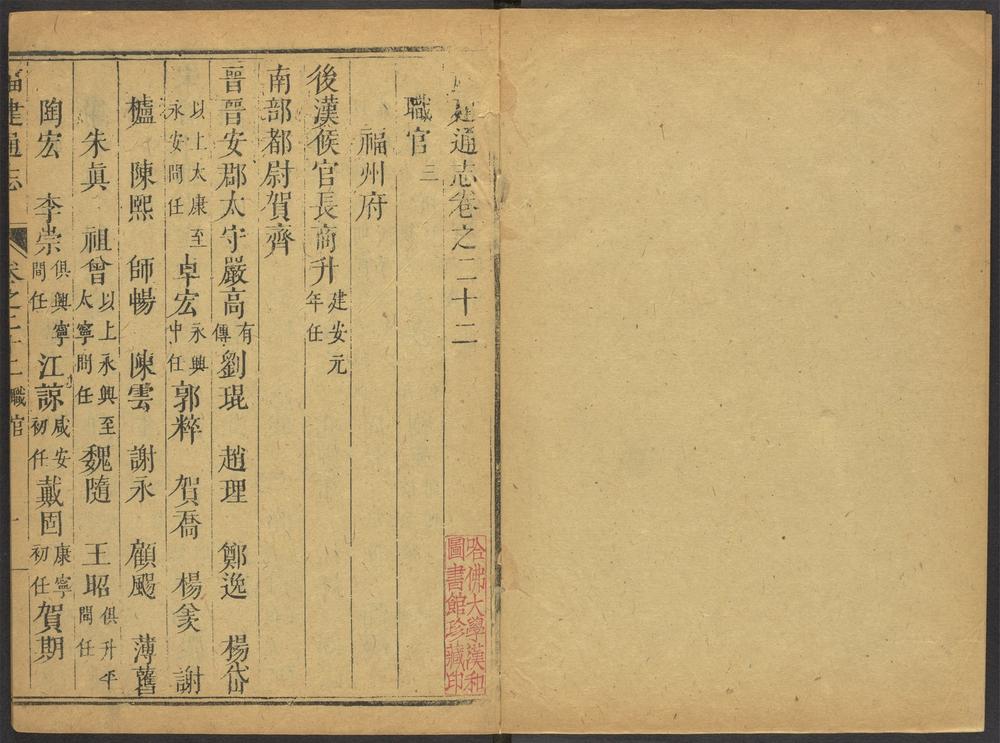 建通志卷之二十二
職官 三
福州府
後漢候官長商升 建安元年任
南部都尉賀齊
晉晉安郡太守嚴高 有傳 劉琨 趙理 鄭逸 楊岱
以上太康至永安間任 卓宏 永興中任 郭粹 賀喬 楊羕 謝
櫨 陳熙 師暢 陳雲 謝永 顧颺 薄舊
朱眞 祖曾 以上永興至太寧間任 魏隨 王昭 俱升平間任
陶宏 李崇 俱興寧間任 江諒 咸安初任 戴固 康寧初任 賀期
福建通志 卷之二十二 職官 一
哈佛大學漢和
圖書館珍藏印